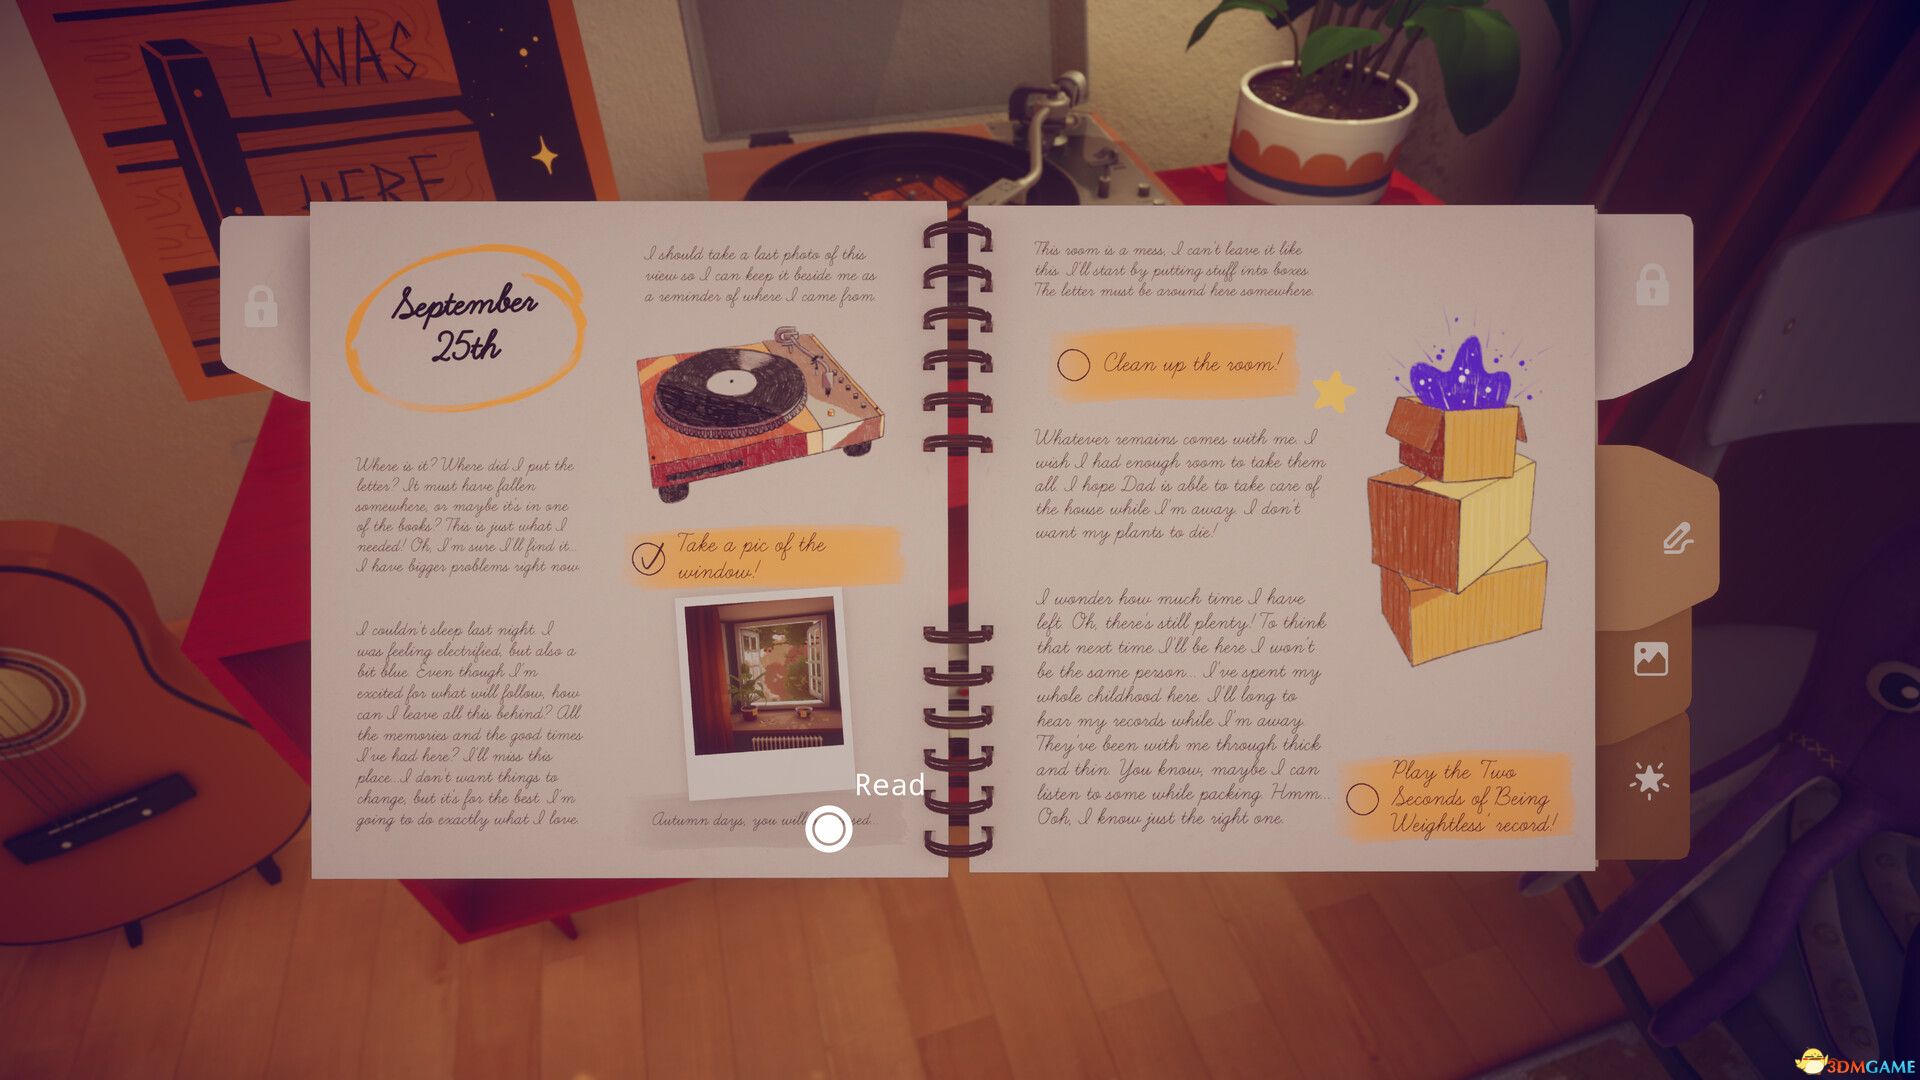 I WAS
HERE
September
25th
Where is it? Where did I put the
letter? It must have fallen
somewhere, or maybe it's in one
of the books? This is just what I
needed! Oh, I'm sure I'll find it...
I have bigger problems right now.
I couldn't sleep last night. I
was feeling electrified, but also a
bit blue. Even though I'm
excited for what will follow, how
can I leave all this behind? All
the memories and the good times
I've had here? I'll miss this
place...I don't want things to
change, but it's for the best. I'm
going to do exactly what I love.
I should take a last photo of this
view so I can keep it beside me as
a reminder of where I came from.
Take a pic of the
window!
Read
Autumn days, you will
This room is a mess, I can't leave it like
this. I'll start by putting stuff into boxes.
The letter must be around here somewhere.
Clean up the room!
Whatever remains comes with me. I
wish I had enough room to take them
all. I hope Dad is able to take care of
the house while I'm away. I don't
want my plants to die!
I wonder how much time I have
left. Oh, there's still plenty! To think
that next time I'll be here I won't
be the same person... I've spent my
whole childhood here. I'll long to
hear my records while I'm away.
They've been with me through thick
and thin. You know, maybe I can
listen to some while packing. Hmm...
Ooh, I know just the right one.
Play the 'Two
Seconds of Being
Weightless' record!
3DMGAME